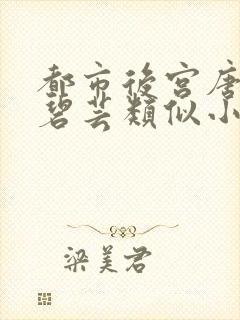 都市後宮唐
碧芸類似小
梁美君